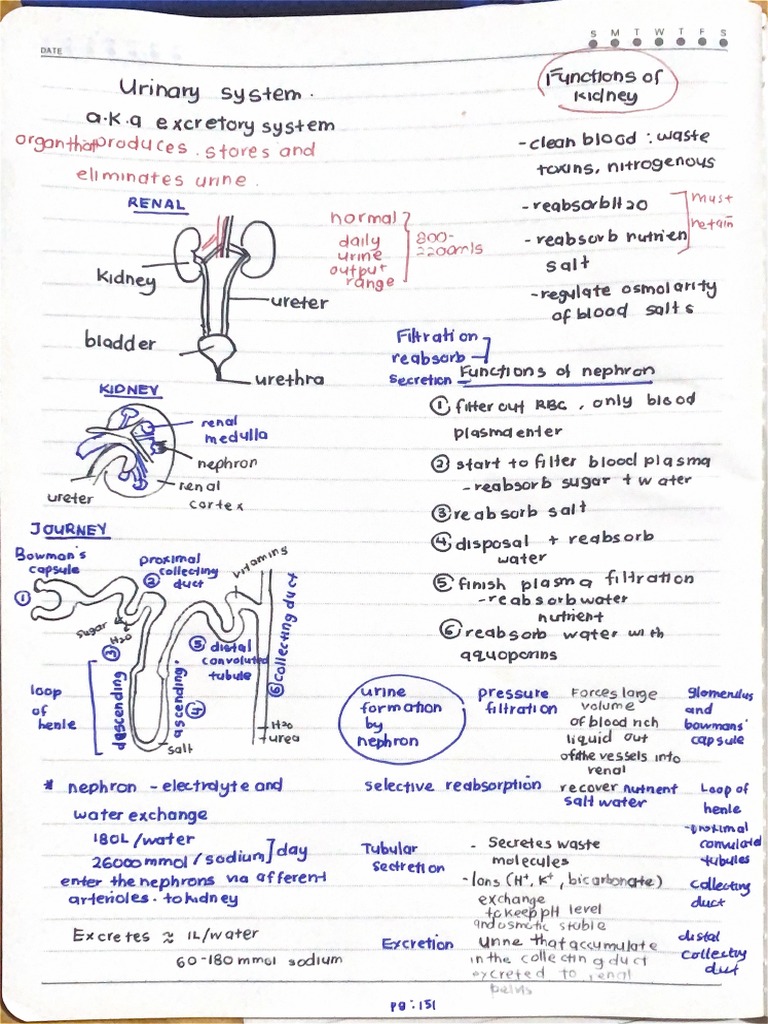 DATE
S M T W T F S
Urinary system.
a.k.a excretory system
organ that produces. stores and
eliminates urine.
RENAL
kidney
ureter
bladder
urethra
normal
daily
urine
output
range
800-
2200mls
Functions of
kidney
- clean blood : waste
toxins, nitrogenous
- reabsorb H20
- reabsorb nutrien
salt
must
retain
- regulate osmolarity
of blood salts
KIDNEY
renal
medulla
nephron
renal
cortex
ureter
Filtration
reabsorb
secretion
Functions of nephron
① filter out RBC, only blood
plasma enter
② start to filter blood plasma
- reabsorb sugar + water
③ reabsorb salt
④ disposal + reabsorb
water
⑤ finish plasma filtration
- reabsorb water
nutrient
⑥ reabsorb water with
aquoporins
JOURNEY
Bowman's
capsule
①
proximal
② collecting
duct
vitamins
sugar
H20
③
⑤ distal
convoluted
tubule
⑥ collecting duct
loop
of
henle
descending
ascending
④
salt
H20
urea
* nephron - electrolyte and
water exchange
180L/water
26000mmol/sodium] day
enter the nephrons via afferent
arterioles. to kidney
Excretes ≈ 1L/water
60-180 mmol sodium
urine
formation
by
nephron
pressure
filtration
Forces large
volume
of blood rich
liquid out
of the vessels into
renal
Glomerulus
and
bowmans'
capsule
selective reabsorption
recover nutrient
salt water
Loop of
henle
- proximal
convulated
tubules
Tubular
sectretion
- Secretes waste
molecules
- Ions (H+, K+, bicarbonate)
exchange
to keep pH level
and osmotic stable
collecting
duct
Excretion
Urine that accumulate
in the collecting duct
excreted to renal
pelvis
distal
collecting
duct
pg: 151